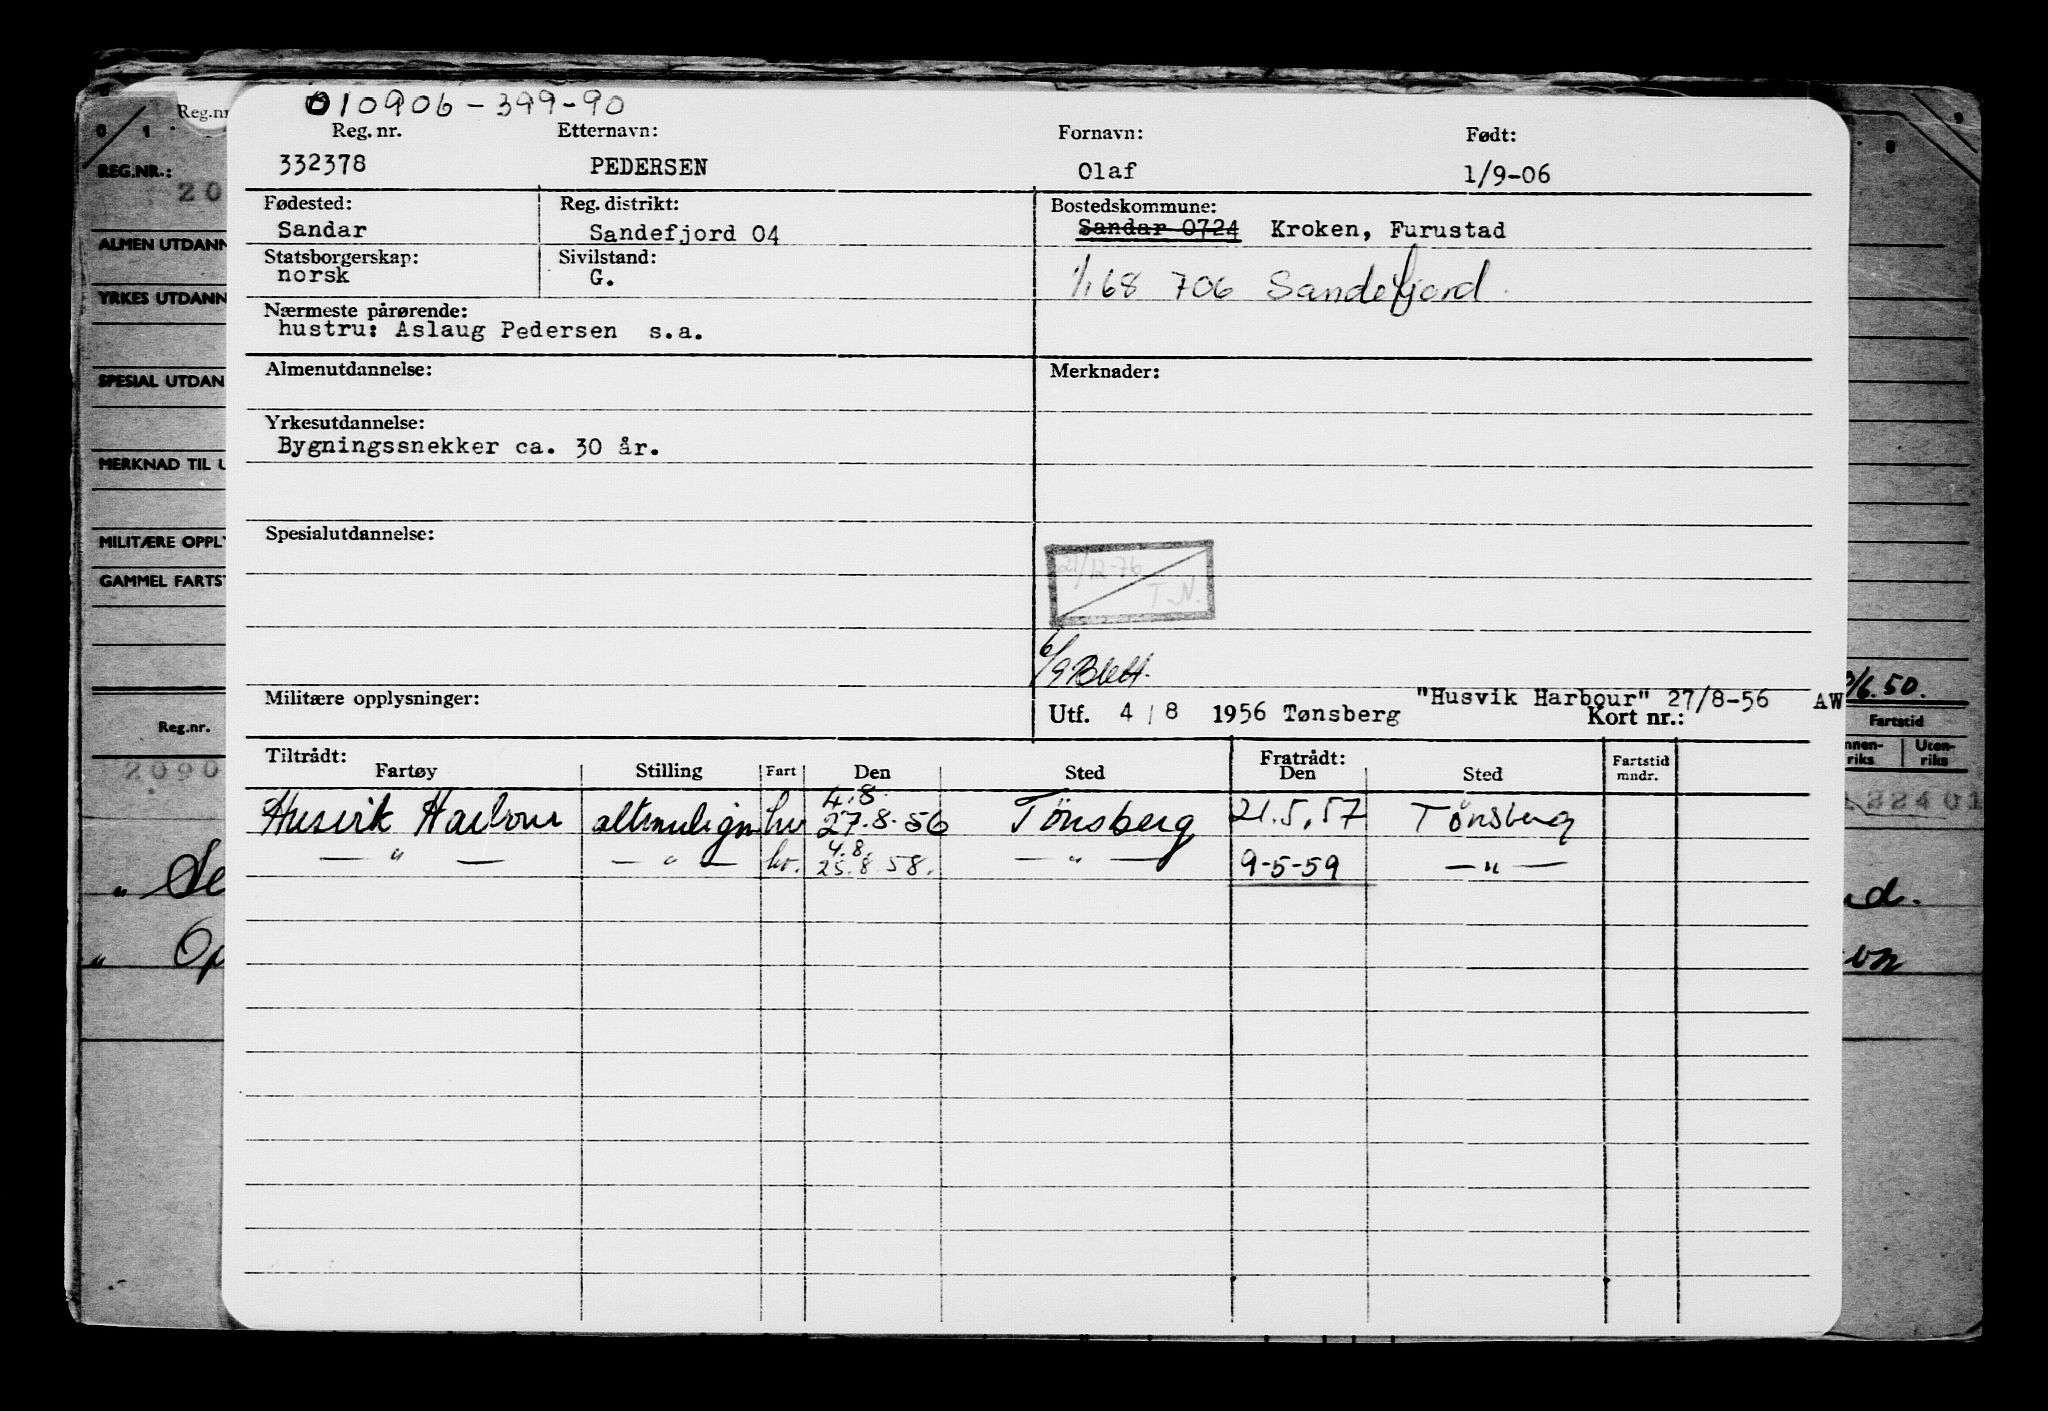 010906-399-90
Reg. nr. Etternavn: Fornavn: Født:
332378 PEDERSEN Olaf 1/9-06
Fødested: Reg. distrikt: Bostedskommune:
Sandar Sandefjord 04 Sandar 0724 Kroken, Furustad
Statsborgerskap: Sivilstand:
norsk G. 1/1 68 706 Sandefjord.
Nærmeste pårørende:
hustru: Aslaug Pedersen s.a.
Almenutdannelse: Merknader:
Yrkesutdannelse:
Bygningssnekker ca. 30 år.
Spesialutdannelse:
21/12-76
T.N.
6/9 Blett.
Militære opplysninger: "Husvik Harbour" 27/8-56 AW
Utf. 4/8 1956 Tønsberg Kort nr.:
Tiltrådt: Fratrådt: Fartstid
Fartøy Stilling Fart Den Sted Den Sted mndr.
4.8.
Husvik Harbour altmuligm hv 27.8.56 Tönsberg 21.5.57 Tönsberg
4.8.
— " — — " — hv. 25.8.58. — " — 9-5-59 — " —
Reg.nr
0 1
REG.NR.:
20
ALMEN UTDANN
YRKES UTDANN
SPESIAL UTDAN
MERKNAD TIL U
MILITÆRE OPPLY
GAMMEL FARTST
Reg.nr.
2090
" Se
" Op
9
8
/6.50.
Fartstid
nnen-riks Uten-riks
22401
nd.